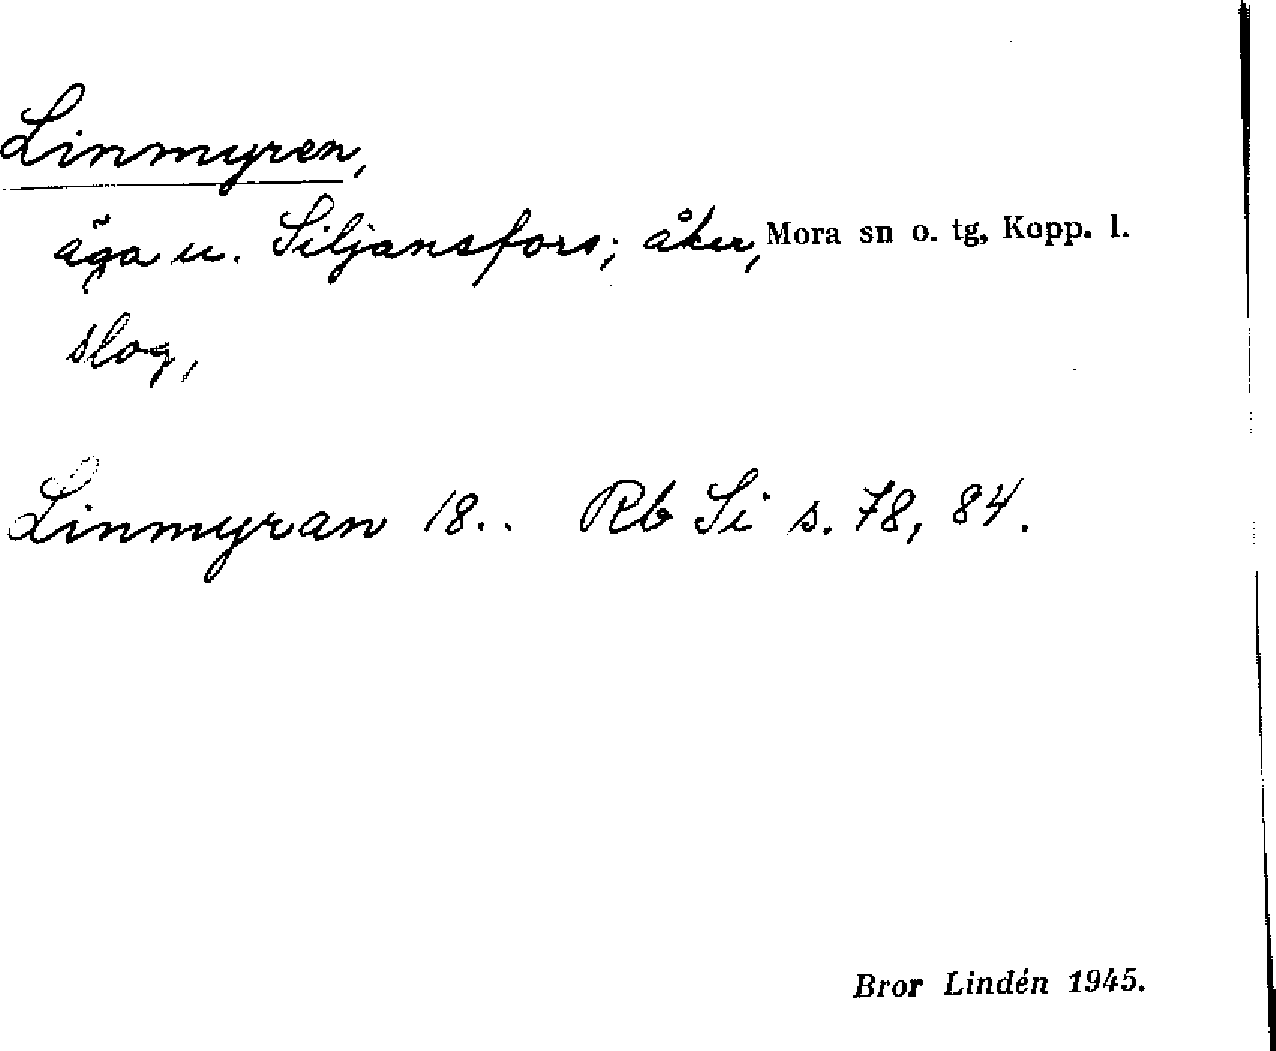 Linmyren,
äga u. Siljansfors; åker, Mora sn o. tg, Kopp. l.
slog,
Linmyran 18.. Rb Si s. 78, 84.
Bror Lindén 1945.